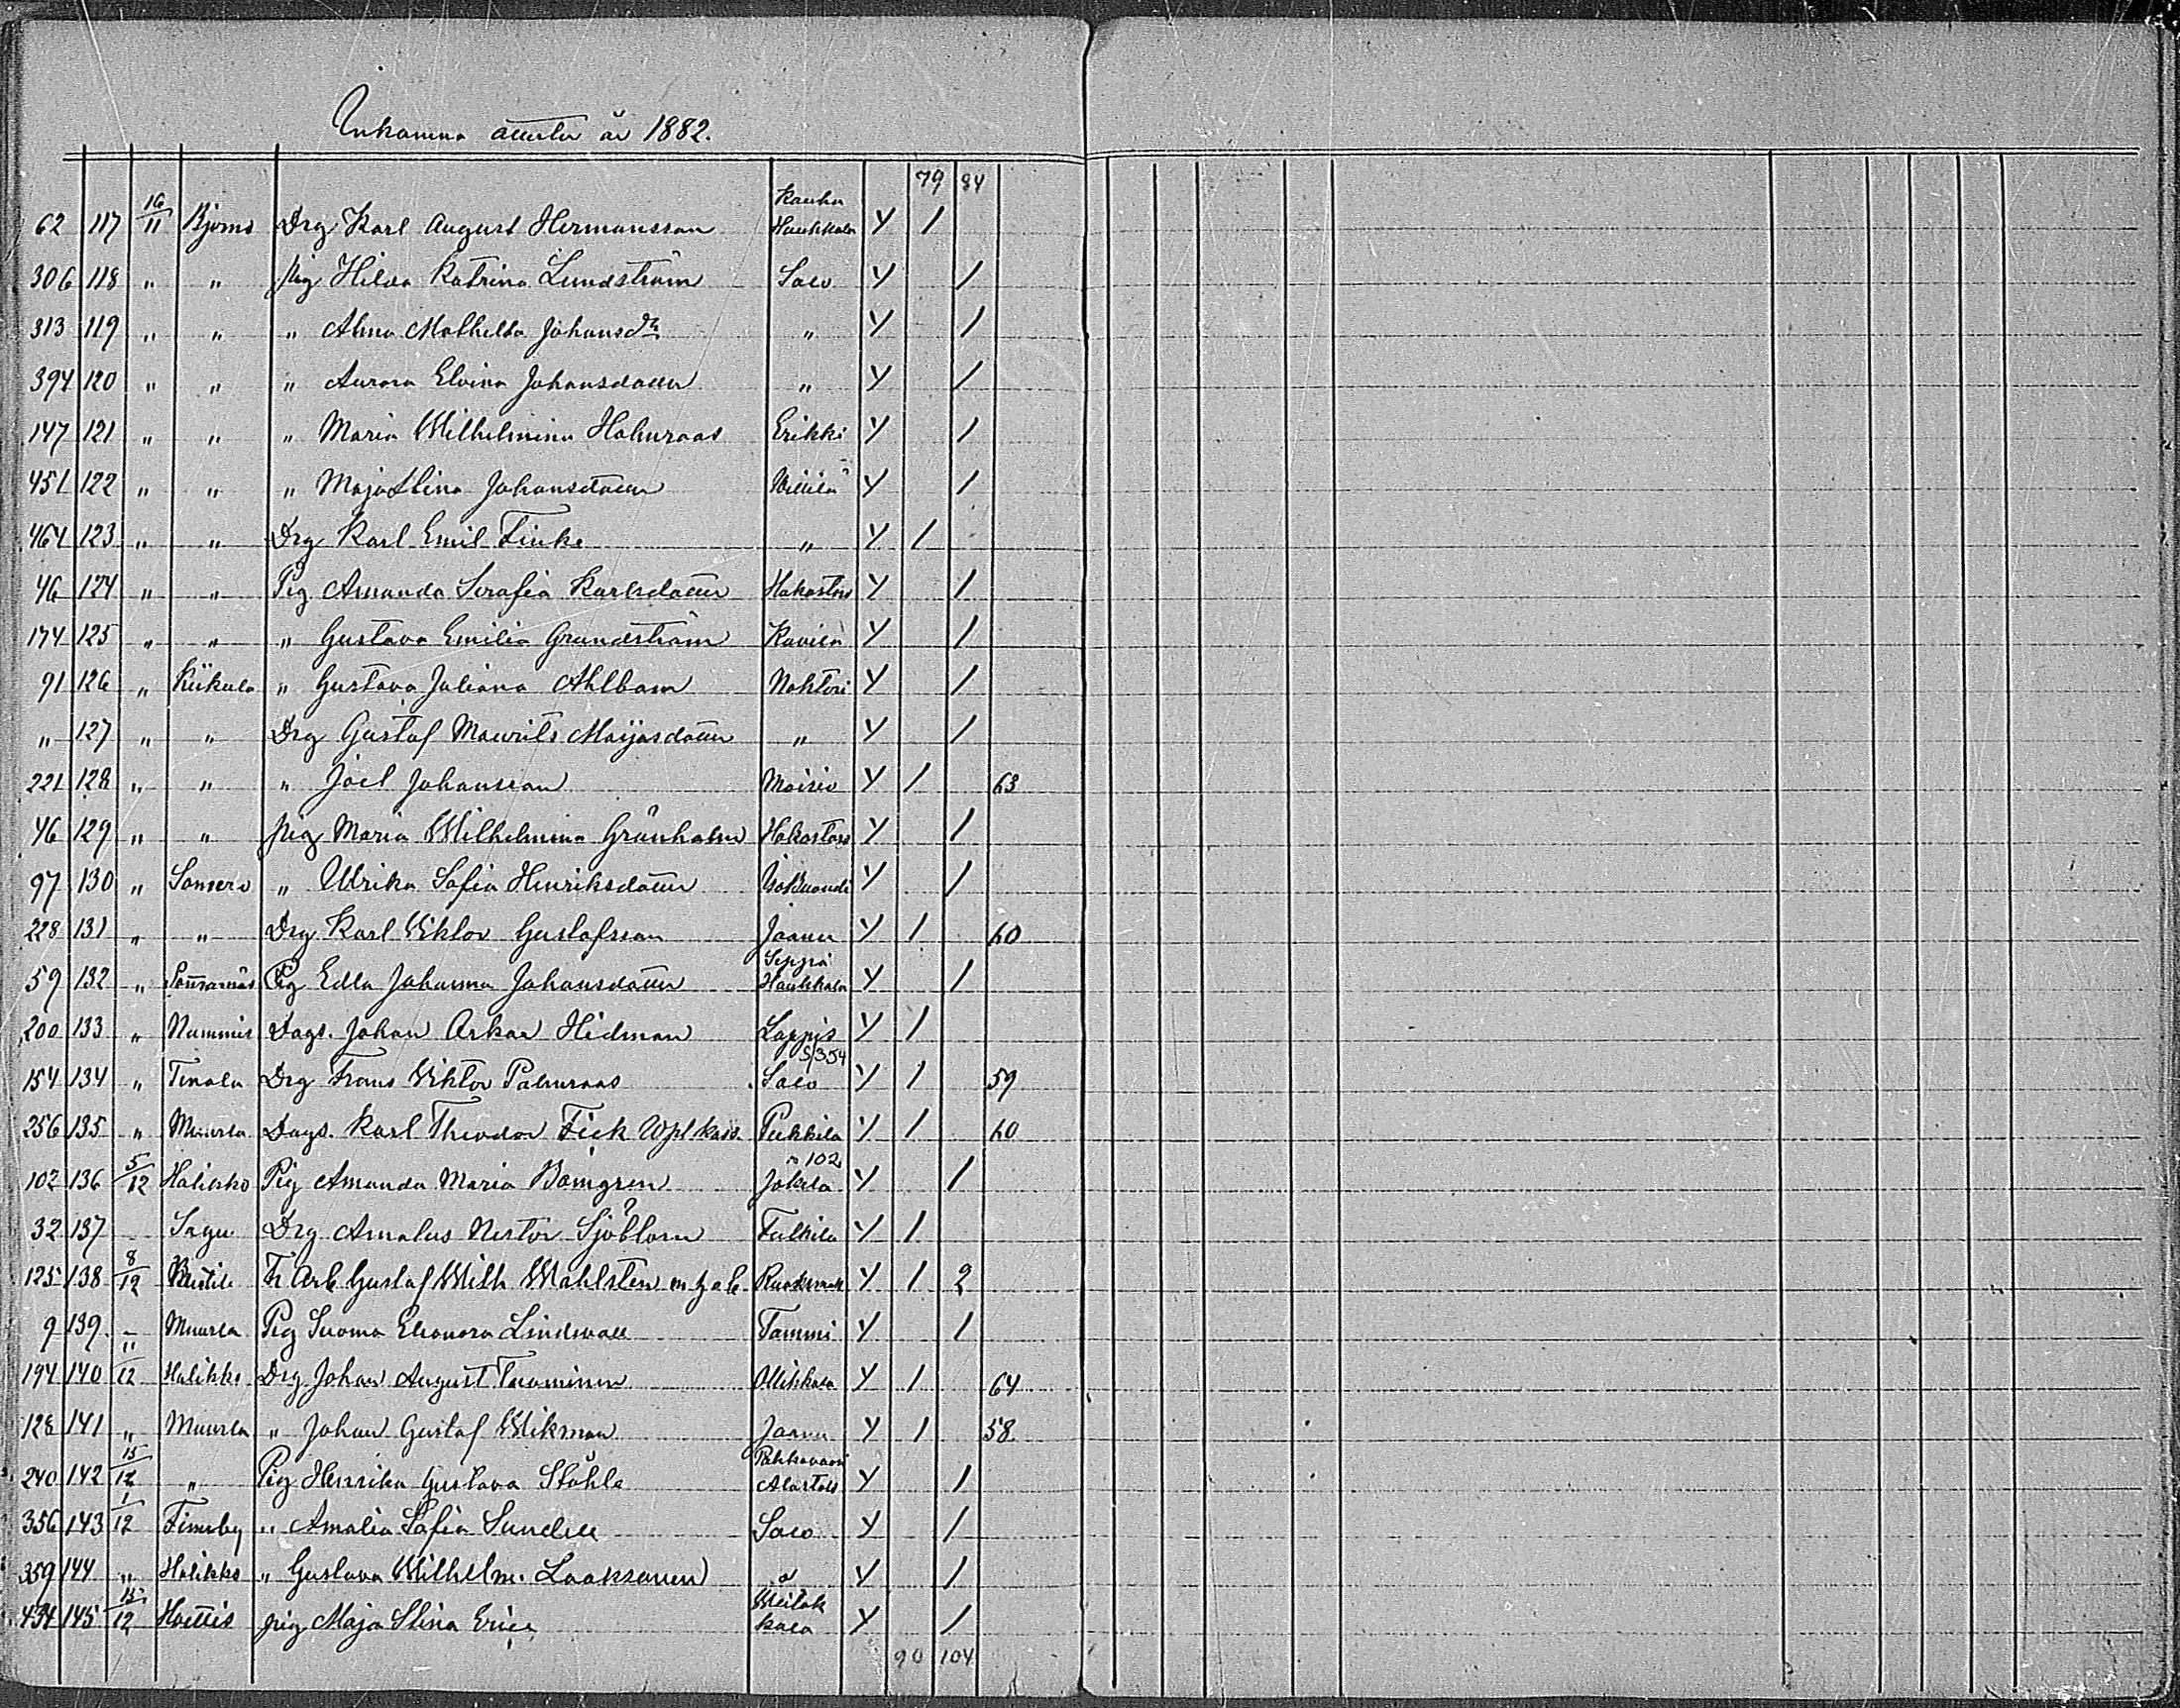 Inkomna attester år 1882.
79 84
62 117 16/11 Bjerno Drg Karl August Hermansson Rauhu Haukkala Y /
306 118 " " pig Hilda Katrina Lundström Salo Y /
313 119 " " " Alma Mathilda Johansdr " Y /
394 120 " " " Aurora Elvina Johansdotter " Y /
147 121 " " " Maria Wilhelmina Holmroos Erikki Y /
451 122 " " " Maja Stina Johansdotter Y /
464 123 " " Drg Karl Emil Finke " Y /
46 124 " " Pig Amanda Serafia Karlsdotter Hakastaro Y /
174 125 " " " Gustava Emilia Grundström Kavila Y /
91 126 " Kiikala " Gustava Juliana Ahlbom Nohteri Y /
" 127 " " Drg Gustaf Maurits Maijasdotter " Y /
221 128 " " " Joel Johansson Moisio Y / 63
46 129 " " pig Maria Wilhelmina Grönholm Hakastaro Y /
97 130 " Somero " Ulrika Sofia Henriksdotter Y /
228 131 " " Drg Karl Viktor Gustafsson Jaanu Y / 60
59 132 " Pig Edla Johanna Johansdotter Seppä Haukkala Y /
200 133 " Nummis Dags. Johan Oskar Hidman Lappis Y /
S/354
154 134 " Tenala Drg Frans Viktor Palmroos Salo Y / 59
256 135 " Muurla Dags. Karl Theodor Fick Pukkila Y / 60
n 102
102 136 5/12 Halikko Pig Amanda Maria Bomgren Jokela Y /
32 137 Sagu Drg Amatus Nestor Sjöblom Fulkila Y /
125 138 8/12 Fr Arb Gustaf Wilh Wahlsten m h o b Y / 2
9 139 – Muurla Pig Suoma Eleonora Lindwall Tammi Y /
194 140 11/12 Halikko Drg Johan August Tuominen Ollikkala Y / 64
128 141 " Muurla " Johan Gustaf Wikman Jaanu Y / 58
240 142 15/12 " Pig Henrika Gustava Ståhle Pahkavuori Alastalo Y /
356 143 1/12 Finnby " Amalia Sofia Sundell Salo Y /
359 144 " Halikko " Gustava Wilhelm. Laaksonen Y /
434 145 15/12 Hvittis pig Maja Stina Y /
90 104